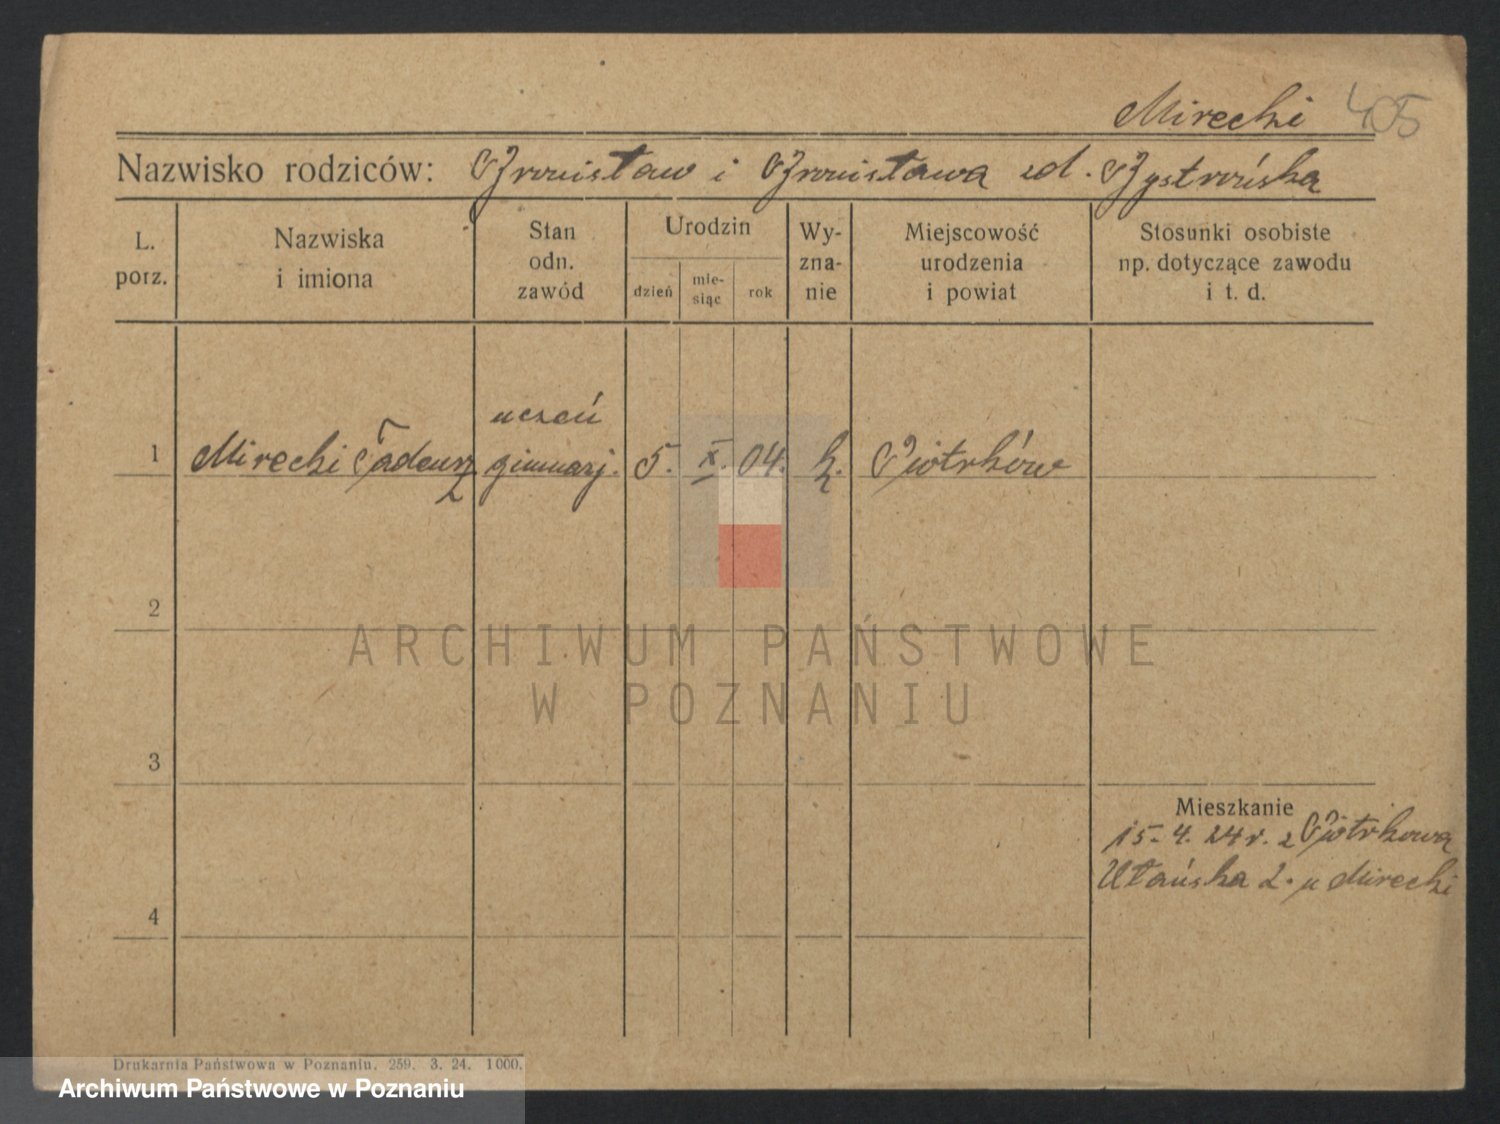 Mirecki 405
Nazwisko rodziców: Bronisław i Bronisława zd. Bystrońska
L. porz.
Nazwiska i imiona
Stan odn. zawód
Urodzin
dzień
mie-siąc
rok
Wy-zna-nie
Miejscowość urodzenia i powiat
Stosunki osobiste np. dotyczące zawodu i t. d.
1 Mirecki Tadeusz uczeń gimnazj. 5. X. 04. k. Piotrków
2
3
4
Mieszkanie
15. 4. 24 r. z Piotrkowa
Ułańska 2. u Mirecki
Drukarnia Państwowa w Poznaniu. 259. 3. 24. 1000.
ARCHIWUM PAŃSTWOWE
W POZNANIU
Archiwum Państwowe w Poznaniu